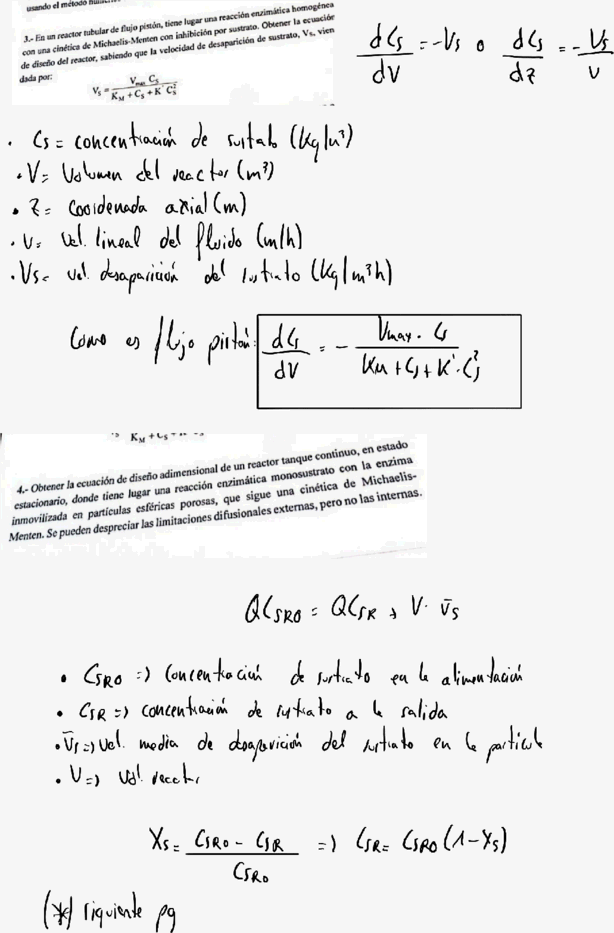 usando el método
3.- En un reactor tubular de flujo pistón, tiene lugar una reacción enzimática homogénea
con una cinética de Michaelis-Menten con inhibición por sustrato. Obtener la ecuación
de diseño del reactor, sabiendo que la velocidad de desaparición de sustrato, Vs, vien
dada por:
Vs = Vmax Cs / (KM + Cs + K' Cs²)
dCs/dV = -Vs o dCs/dz = -Vs/v
• Cs = concentración de sustrato (kg/m³)
• V= Volumen del reactor (m³)
• z = coordenada axial (m)
• v= vel. lineal del fluido (m/h)
• Vs= vel. desaparición del sustrato (kg/m³h)
Como es flujo pistón: dCs/dV = - Vmax · Cs / (KM + Cs + K' · Cs²)
KM + Cs +
4.- Obtener la ecuación de diseño adimensional de un reactor tanque continuo, en estado
estacionario, donde tiene lugar una reacción enzimática monosustrato con la enzima
inmovilizada en partículas esféricas porosas, que sigue una cinética de Michaelis-
Menten. Se pueden despreciar las limitaciones difusionales externas, pero no las internas.
QCSR0 = QCSR + V · v̄s
• CSR0 => Concentración de sustrato en la alimentación
• CSR => concentración de sustrato a la salida
• v̄s => Vel. media de desaparición del sustrato en la partícula
• V => Vol. reactor
Xs = (CSR0 - CSR) / CSR0 => CSR = CSR0 (1-Xs)
(*) siguiente pg